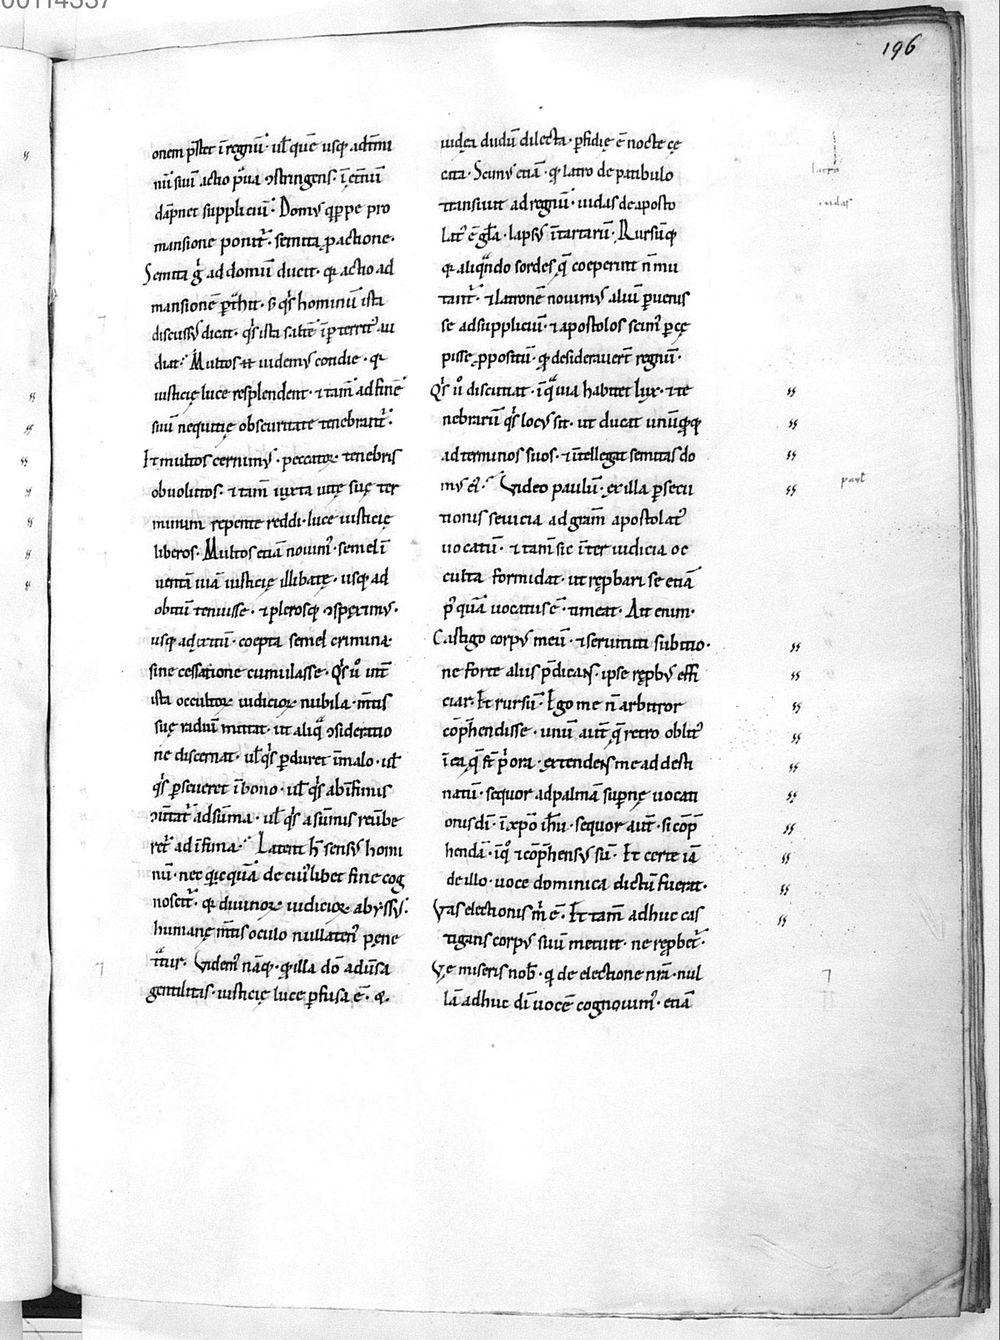 00114337
196
onem p̄stet ī regnū· ul̄ quē usq; ad etīmi
nū suū actio p̄ua ↄstringens· ī et̄nū
dāpnet suppliciū· Domꝰ qͥppe pro
mansione ponit᷑· semita ꝓ actione·
Semita g̊ ad domū ducit· qꝛ actio ad
mansionē ꝑtͣhit· s; qͥs hominū ista
discussꝰ dicat· qͥs ista saltē īꝑterritꝰ au
diat· Multos  uidemꝰ cotidie· qꝛ
iusticię luce resplendent· ⁊ tam̄ ad finē
suū nequitię obscuritate tenebrant᷑·
Et multos cernimꝰ· peccatoꝝ tenebris
obuolutos· ⁊ tam̄ iuxta uitę suę ter
minum repente reddi luce iusticię
liberos· Multos etiā nouimꝰ· semel ī
uentā uiā iusticię illibatę· usq; ad
obitū tenuisse· ⁊ plerosq; ↄspeximꝰ·
usq; ad exitū· coepta semel crimina
sine cessatione cumulasse· Qͥs ů int̄
ista occultoꝝ iudicioꝝ nubila· m̄tis
suę radiū mittat· ut aliqͣ ↄsideratio
ne discernat· ul̄ qͥs ꝑduret ī malo· ul̄
qͥs ꝑseueret ī bono· ul̄ qͥs ab īfimis
ↄu̇tat᷑ ad sūma· ul̄ qͥs a sūmis reūte
ret᷑ ad īfima· Latent h̄ sensꝰ homi
nū· nec qͥcquā de cuiꝰlibet fine cog
noscit᷑· qꝛ diuinoꝝ iudicioꝝ abyssꝰ·
humanę m̄tis oculo nullatenꝰ pene
tͣtur· Videmꝰ nāq;· qꝛ illa dō adusa
gentilitas· iusticię luce ꝑfusa ē· &
iudea dudū dilecta· ꝑfidię ē nocte cę
cata· Scimꝰ etiā· qꝛ latro de patibulo
transiuit ad regnū· iudas de aposto
latꝰ ē gl̄a· lapsꝰ ī tartarū· Rursūq;
qꝛ aliqͣndo sordes q̄ coeperunt n̄ mu
tant᷑· ⁊ latronē nouimꝰ aliū ꝑuenis
se ad suppliciū· ⁊ apostolos scimꝰ ꝑcę
pisse ꝓpositū· qꝛ desiderauer̄t regnū·
Qͥs ů discutiat· ī qͣ uia habitet lux· ⁊ te
nebrarū qͥs locꝰ sit· ut ducat unūqͫq;
ad terminos suos· ⁊ intellegat semitas do
mꝰ eiꝰ· Video paulū· ex illa ꝑsecu
tionis seuicia ad grām apostolatꝰ
uocatū· ⁊ tam̄ sic īter iudicia oc
culta formidat· ut reꝓbari se etiā
pꝰ quā uocatus ē· timeat· Ait enim·
Castigo corpꝰ meū· ⁊ seruituti subitio·
ne forte aliis p̄dicans· ipse reꝓbꝰ effi
ciar· Et rursū· Ego me n̄ arbitror
cōp̄hendisse· unū aut̄ q̄ retro oblitꝰ
ī ea q̄ st̄ priora· extendens me ad desti
natū· sequor ad palmā suꝑnę uocati
onis dī· ī xp̄o ih̄u· sequor aut̄· si cōp̄
hendā· ī qͦ ⁊ cōp̄hensꝰ sū· Et certe iā
de illo· uoce dominica dictū fuerat·
Vas electionis m̄ ē· Et tam̄ adhuc cas
tigans corpꝰ suū metuit· ne reꝓbet᷑·
Vę miseris nob̄· qi de electione nr̄a· nul
lā adhuc dī uocē cognouimꝰ· etiā
latro
iudas
paul̄